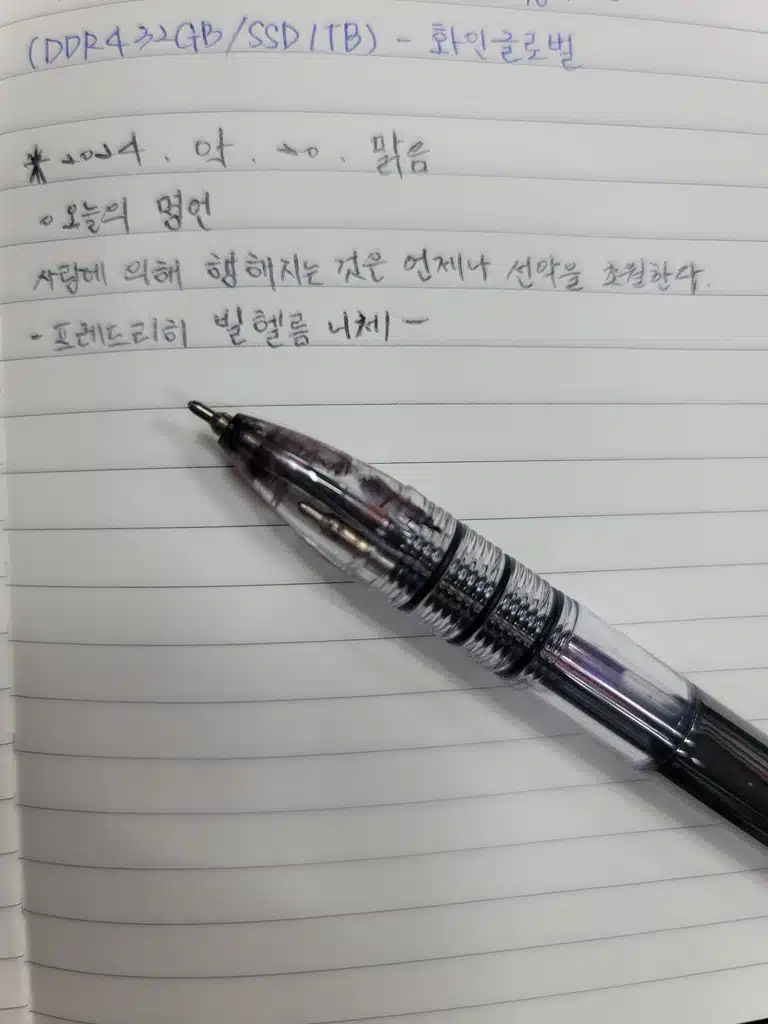 (DDR4 32GB/SSD 1TB) - 화인글로벌
* 2024. . 20. 맑음
◦ 오늘의 명언
사랑에 의해 행해지는 것은 언제나 선악을 초월한다.
- 프레드리히 빌헬름 니체 -